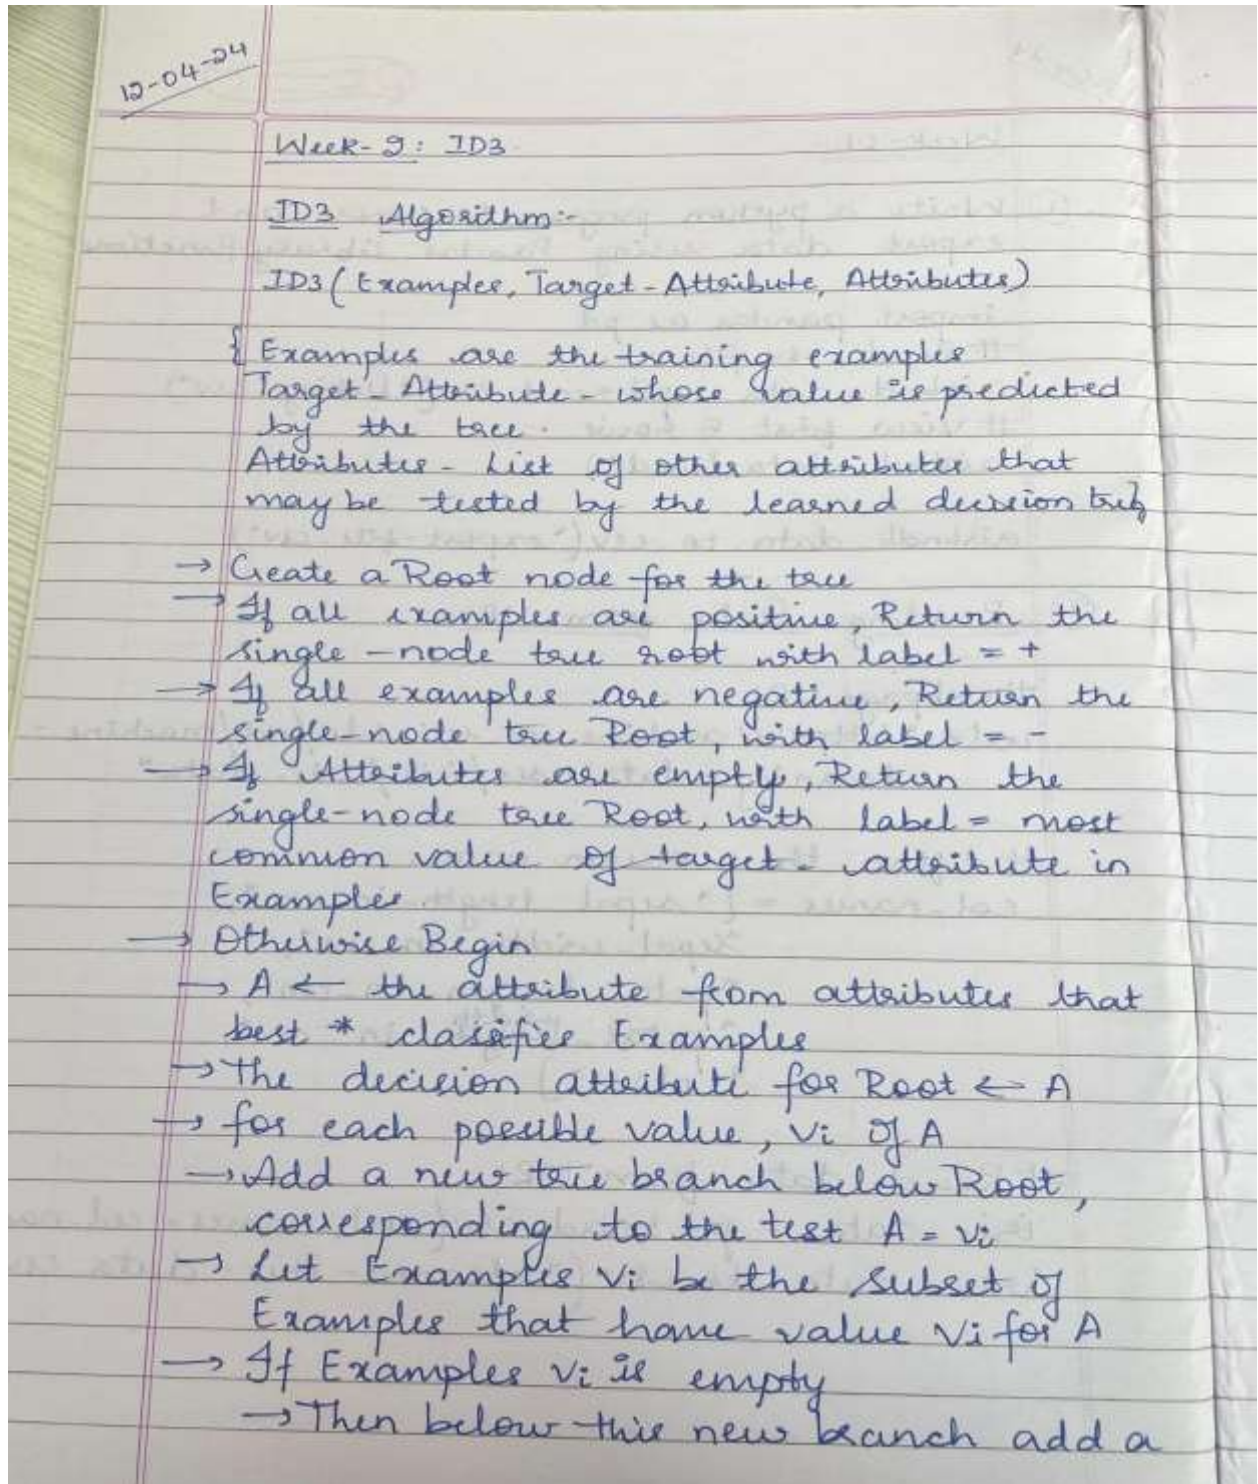 12-04-24
Week-2: ID3
ID3 Algorithm:-
ID3 (Examples, Target-Attribute, Attributes)
{ Examples are the training examples
Target-Attribute - whose value is predicted
by the tree.
Attributes - List of other attributes that
may be tested by the learned decision tree}
→ Create a Root node for the tree
→ If all examples are positive, Return the
single-node tree root with label = +
→ If all examples are negative, Return the
single-node tree Root, with label = -
→ If Attributes are empty, Return the
single-node tree Root, with label = most
common value of target-attribute in
Examples
→ Otherwise Begin
→ A ← the attribute from attributes that
best * classifies Examples
→ The decision attribute for Root ← A
→ for each possible value, vi of A
→ Add a new tree branch below Root,
corresponding to the test A = vi
→ Let Examples vi be the subset of
Examples that have value vi for A
→ If Examples vi is empty
→ Then below this new branch add a